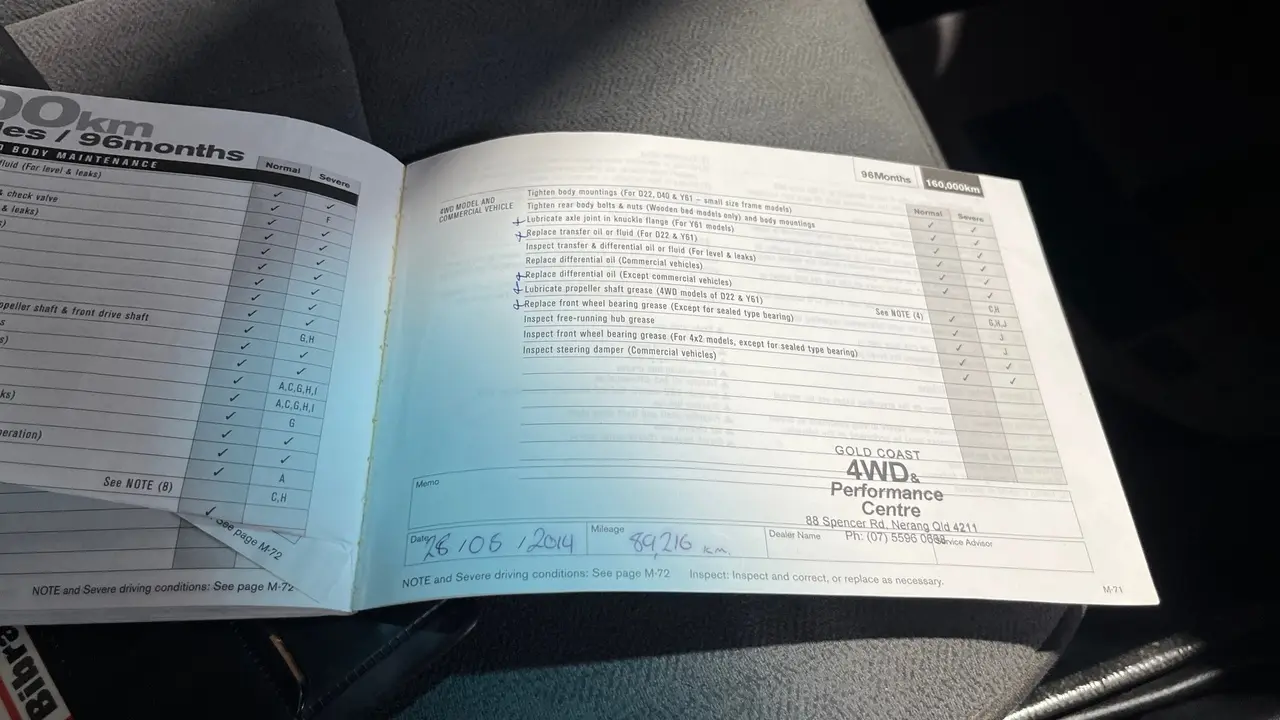 00km
les / 96months
BODY MAINTENANCE
Normal
Severe
fluid (For level & leaks)
& check valve
& leaks)
F
opeller shaft & front drive shaft
G,H
A,C,G,H,I
A,C,G,H,I
G
ks)
eration)
A
See NOTE (8)
C,H
See page M-72
NOTE and Severe driving conditions: See page M-72
Bibra
96Months
160,000km
Normal
Severe
4WD MODEL AND
COMMERCIAL VEHICLE
Tighten body mountings (For D22, D40 & Y61 – small size frame models)
Tighten rear body bolts & nuts (Wooden bed models only) and body mountings
Lubricate axle joint in knuckle flange (For Y61 models)
Replace transfer oil or fluid (For D22 & Y61)
Inspect transfer & differential oil or fluid (For level & leaks)
Replace differential oil (Commercial vehicles)
Replace differential oil (Except commercial vehicles)
C,H
Lubricate propeller shaft grease (4WD models of D22 & Y61)
G,H,J
Replace front wheel bearing grease (Except for sealed type bearing)
See NOTE (4)
J
Inspect free-running hub grease
J
Inspect front wheel bearing grease (For 4x2 models, except for sealed type bearing)
Inspect steering damper (Commercial vehicles)
GOLD COAST
4WD &
Performance
Centre
88 Spencer Rd, Nerang Qld 4211
Ph: (07) 5596 0688
Memo
Date
28/06/2014
Mileage
89,216 km.
Dealer Name
Service Advisor
NOTE and Severe driving conditions: See page M-72 Inspect: Inspect and correct, or replace as necessary.
M-71